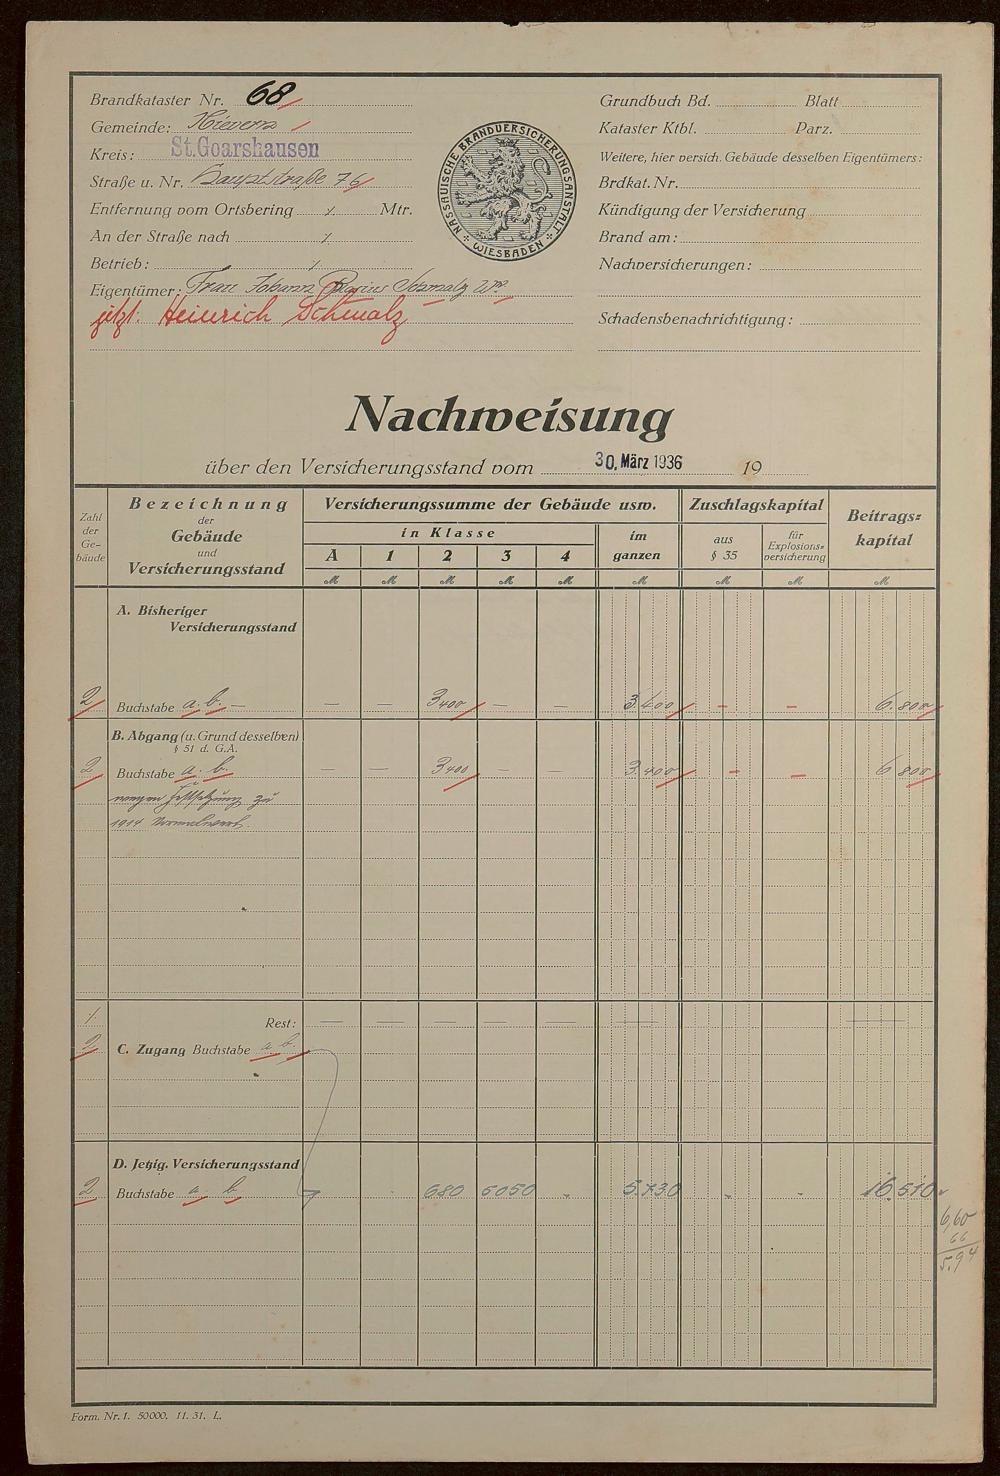 Brandkataster Nr. 68
Gemeinde: Nievern
Kreis: St. Goarshausen
Straße u. Nr. Hauptstraße 76
Entfernung vom Ortsbering ./. Mtr.
An der Straße nach ./.
Betrieb: ./.
Eigentümer: Frau Johann Schmalz Wwe.
jetzt: Heinrich Schmalz
NASSAUISCHE BRANDVERSICHERUNGSANSTALT
* WIESBADEN *
Grundbuch Bd. Blatt
Kataster Ktbl. Parz.
Weitere, hier versich. Gebäude desselben Eigentümers:
Brdkat. Nr.
Kündigung der Versicherung
Brand am:
Nachversicherungen:
Schadensbenachrichtigung:
Nachweisung
über den Versicherungsstand vom 30. März 1936 19
Zahl der Ge-bäude
Bezeichnung der Gebäude und Versicherungsstand
Versicherungssumme der Gebäude usw.
in Klasse
A 1 2 3 4
im ganzen
Zuschlagskapital
aus § 35
für Explosions-versicherung
Beitrags-kapital
M M M M M M M M M
A. Bisheriger
Versicherungsstand
2 Buchstabe a. b. — — — 3400 — — 3.400 — — 6.800
B. Abgang (u. Grund desselben)
§ 51 d. G.A.
2 Buchstabe a. b. — — 3400 — — 3.400 — — 6 800
wegen Festsetzung zu
1914 Normalwert.
./. Rest: — — — — — — —
2 C. Zugang Buchstabe a b.
D. Jetzig. Versicherungsstand
2 Buchstabe a. b. 680 5050 „ 5.730 „ „ 16.510
6,60
66
5.94
Form. Nr. 1. 50000. 11. 31. L.